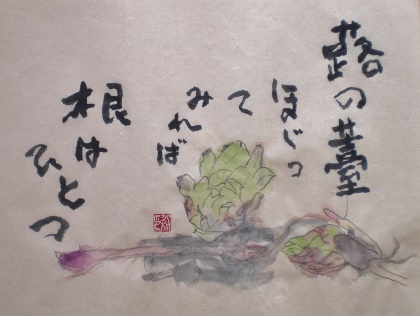 蕗の薹
ほじっ
て
みれば
根は
ひとつ